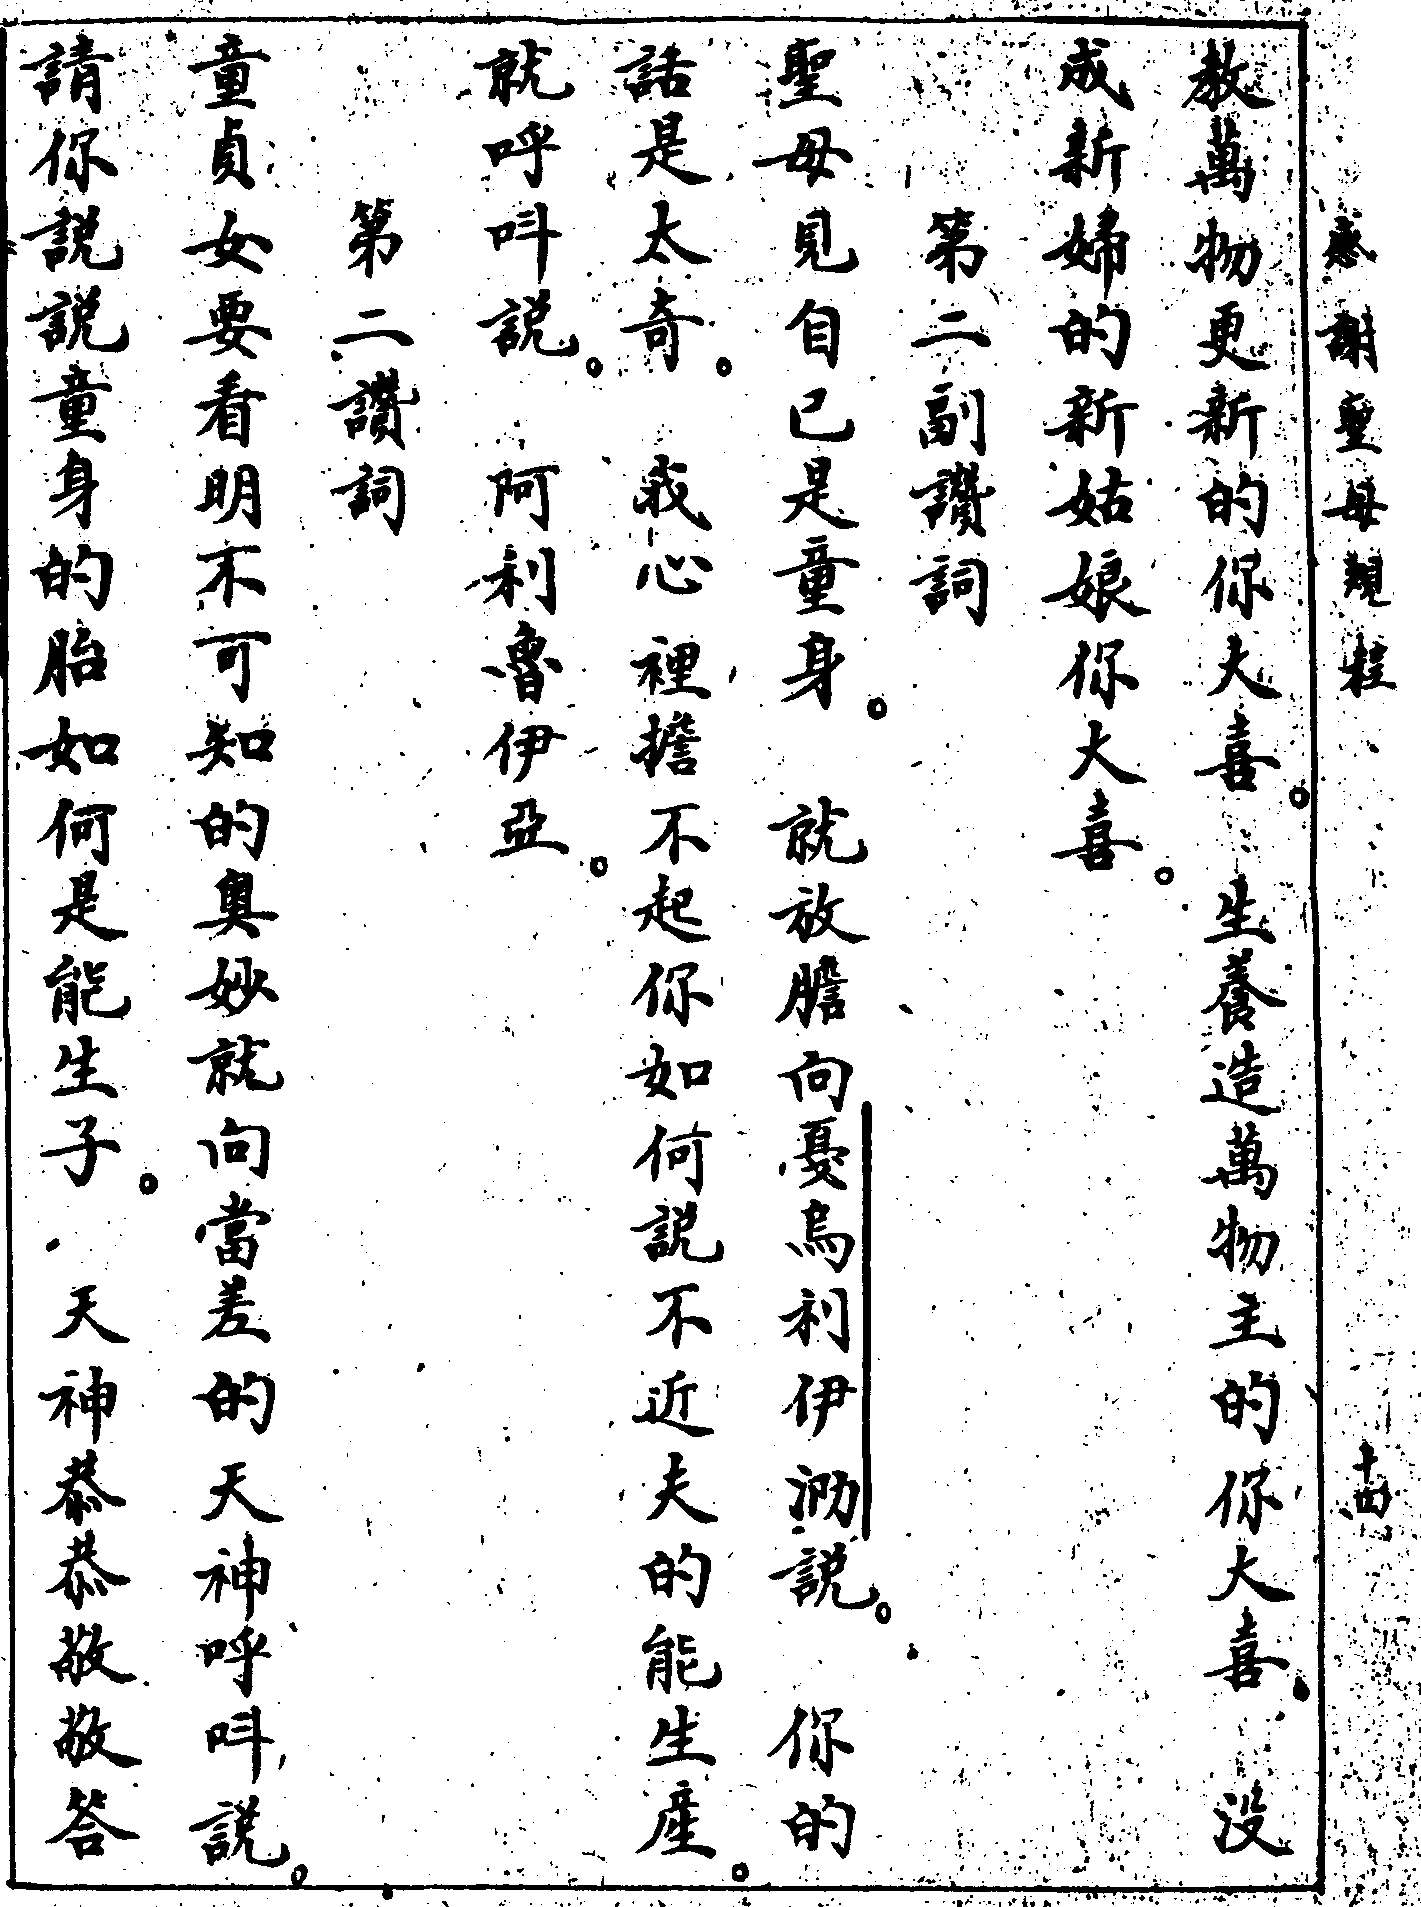 感謝聖母規程 十四
教萬物更新的你大喜。生養造萬物主的你大喜。没
成新婦的新姑娘你大喜。
第二副讚詞
聖母見自已是童身。就放膽向戞烏利伊泐説。你的
話是太奇。我心裡擔不起你如何説不近夫的能生産。
就呼呌説。阿利魯伊亞。
第二讚詞
童貞女要看明不可知的奥妙就向當差的天神呼呌説。
請你説説童身的胎如何是能生子。天神恭恭敬敬答